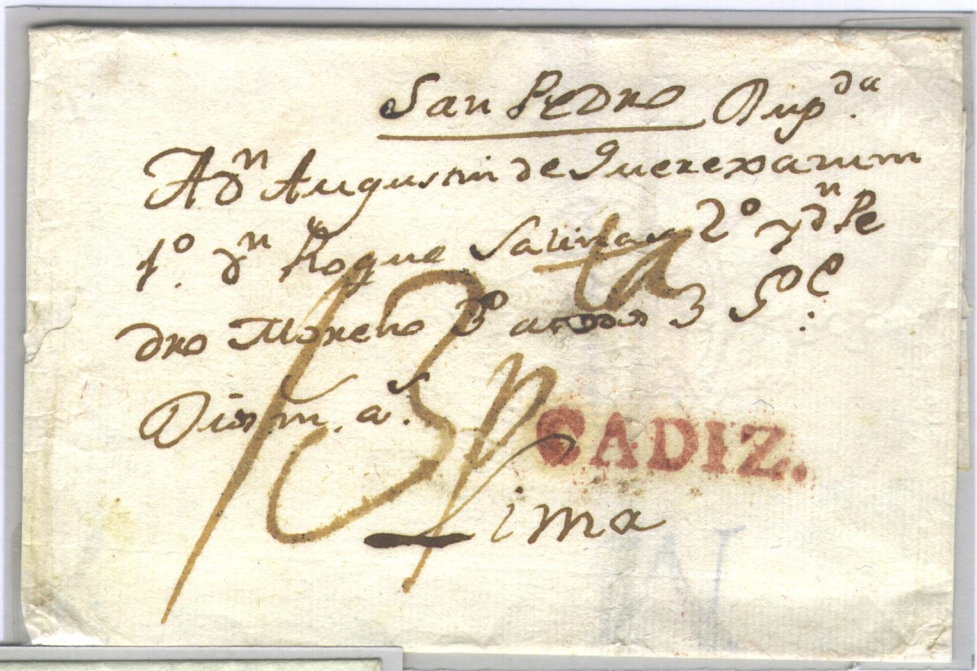 San Pedro Dup.da
A Dn Augustin de Querexazu en
1o. Dn Roque Salinas 2o y Dn Pe
dro Moreno 3o a todos 3
Dios m. as.
Lima
CADIZ.